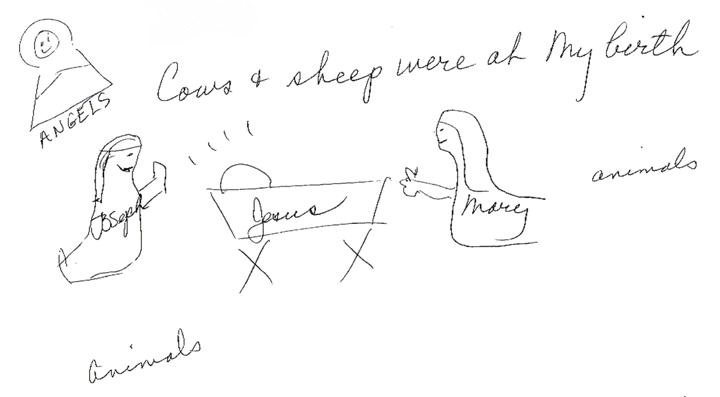 Cows & sheep were at My birth
ANGELS
animals
Joseph
Jesus
Mary
animals